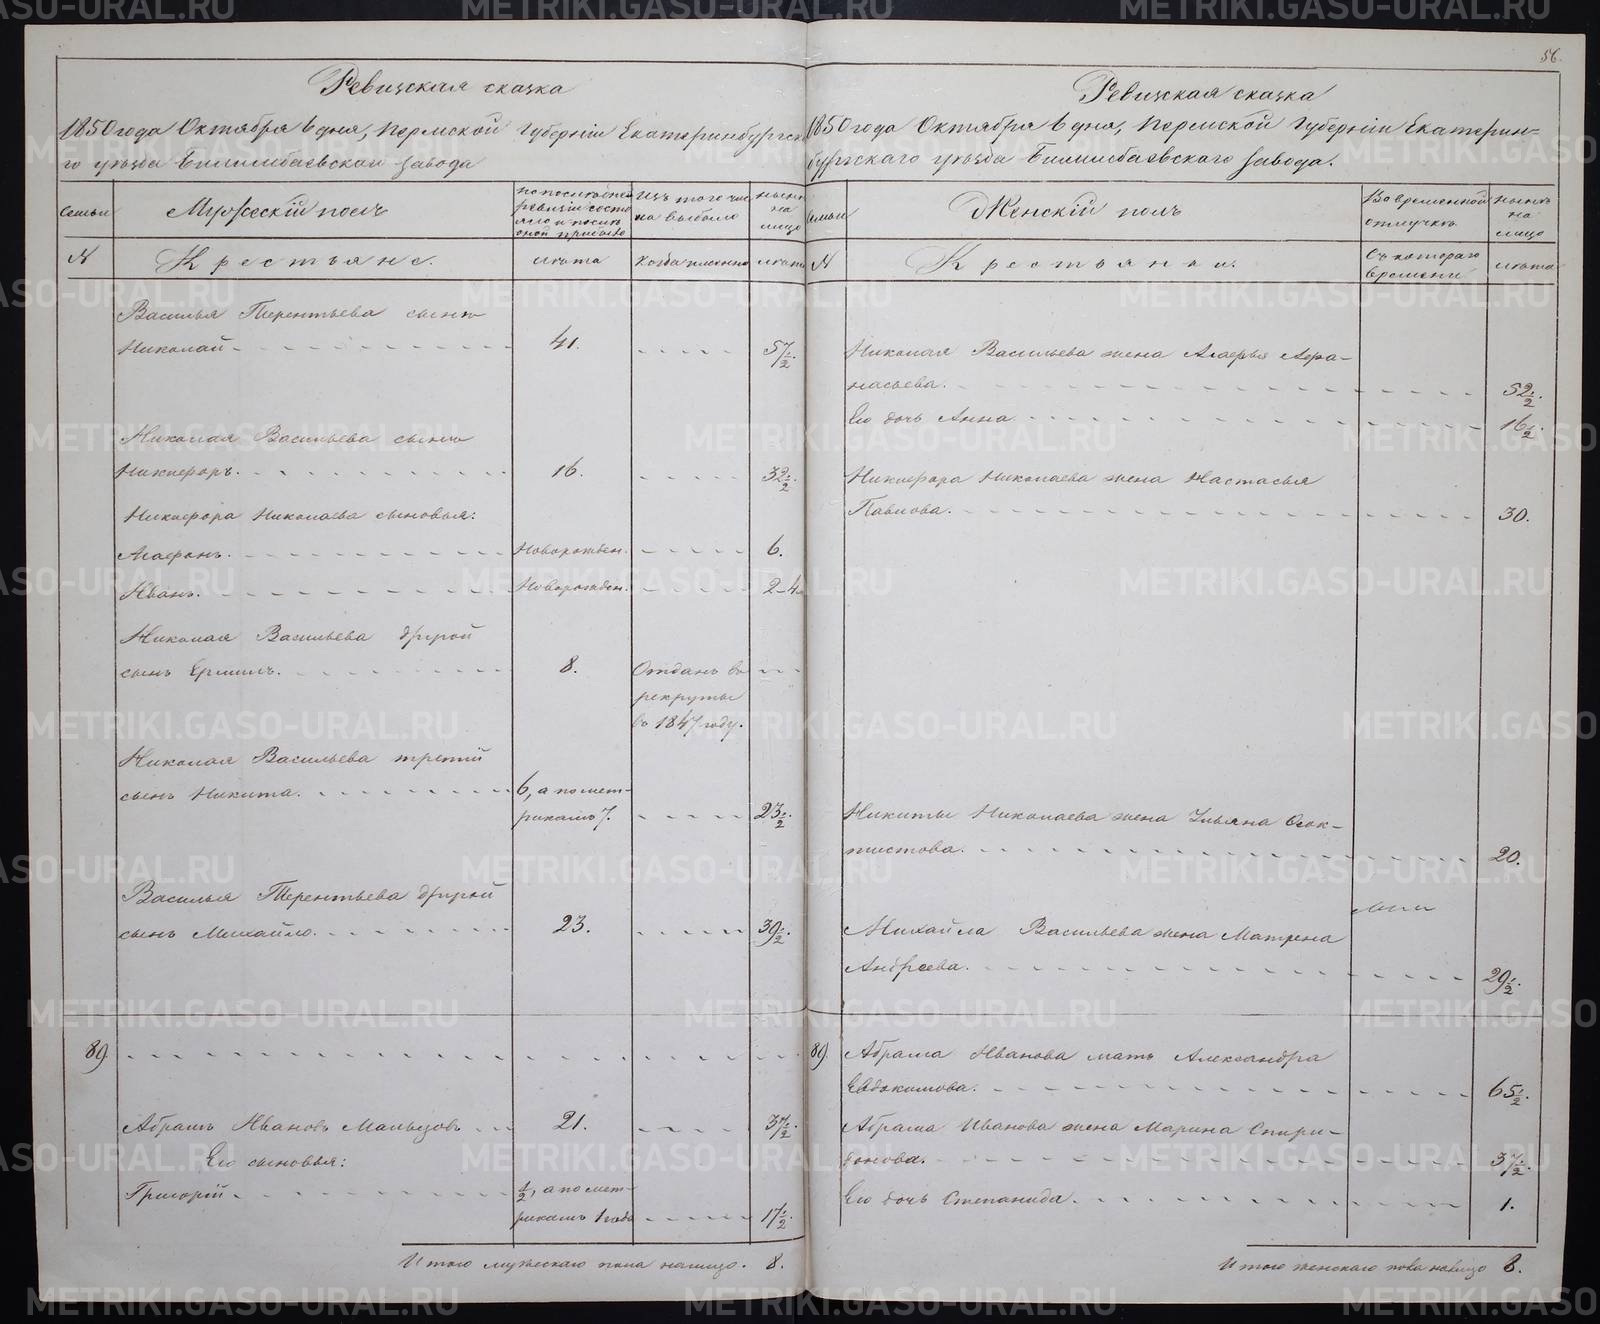 56.
Ревизская сказка
1850 года Октября 6 дня, Пермской Губерніи Екатеринбургска
го уѣзда Билимбаевскаго Завода
Семьи
Мужескій полъ
по послѣдней ревизіи состояло и послѣ оной прибыло
Изъ того числа выбыло
нынѣ на лицо
№
Крестьяне.
лѣта
Когда именно
лѣта
Василья Терентьева сынъ
Николай 41. 57 1/2.
Николая Васильева сынъ
Никифоръ. 16. 32 1/2.
Никифора Николаева сыновья:
Агафонъ. Новорожден. 6.
Иванъ. Новорожден. 2-4.
Николая Васильева другой
сынъ Ермилъ. 8. Отданъ въ
рекруты
въ 1847 году.
Николая Васильева третій
сынъ Никита. 6, а по мет-
рикамъ 7. 23 1/2.
Василья Терентьева другой
сынъ Михайло. 23. 39 1/2.
89.
Абрамъ Ивановъ Мальцовъ 21. 37 1/2.
Его сыновья:
Григорій 1/2, а по мет-
рикамъ 1 года 17 1/2.
Итого мужескаго пола налицо. 8.
Ревизская сказка
1850 года Октября 6 дня, Пермской Губерніи Екатерин=
бургскаго уѣзда Билимбаевскаго Завода.
Семьи
Женскій полъ
Во временной отлучкѣ
нынѣ на лицо
№
Крестьянки.
Съ котораго времени
лѣта
Николая Васильева жена Агафья Афа-
насьева. 52 1/2.
Его дочь Анна 16 1/2.
Никифора Николаева жена Настасья
Павлова. 30.
Никиты Николаева жена Ульяна Феок-
тистова. 20.
Михайла Васильева жена Матрена
Андреева. 29 1/2.
89. Абрама Иванова мать Александра
Евдокимова. 65 1/2.
Абрама Иванова жена Марина Спири-
донова. 37 1/2.
Его дочь Степанида. 1.
Итого женскаго пола налицо 8.
METRIKI.GASO-URAL.RU